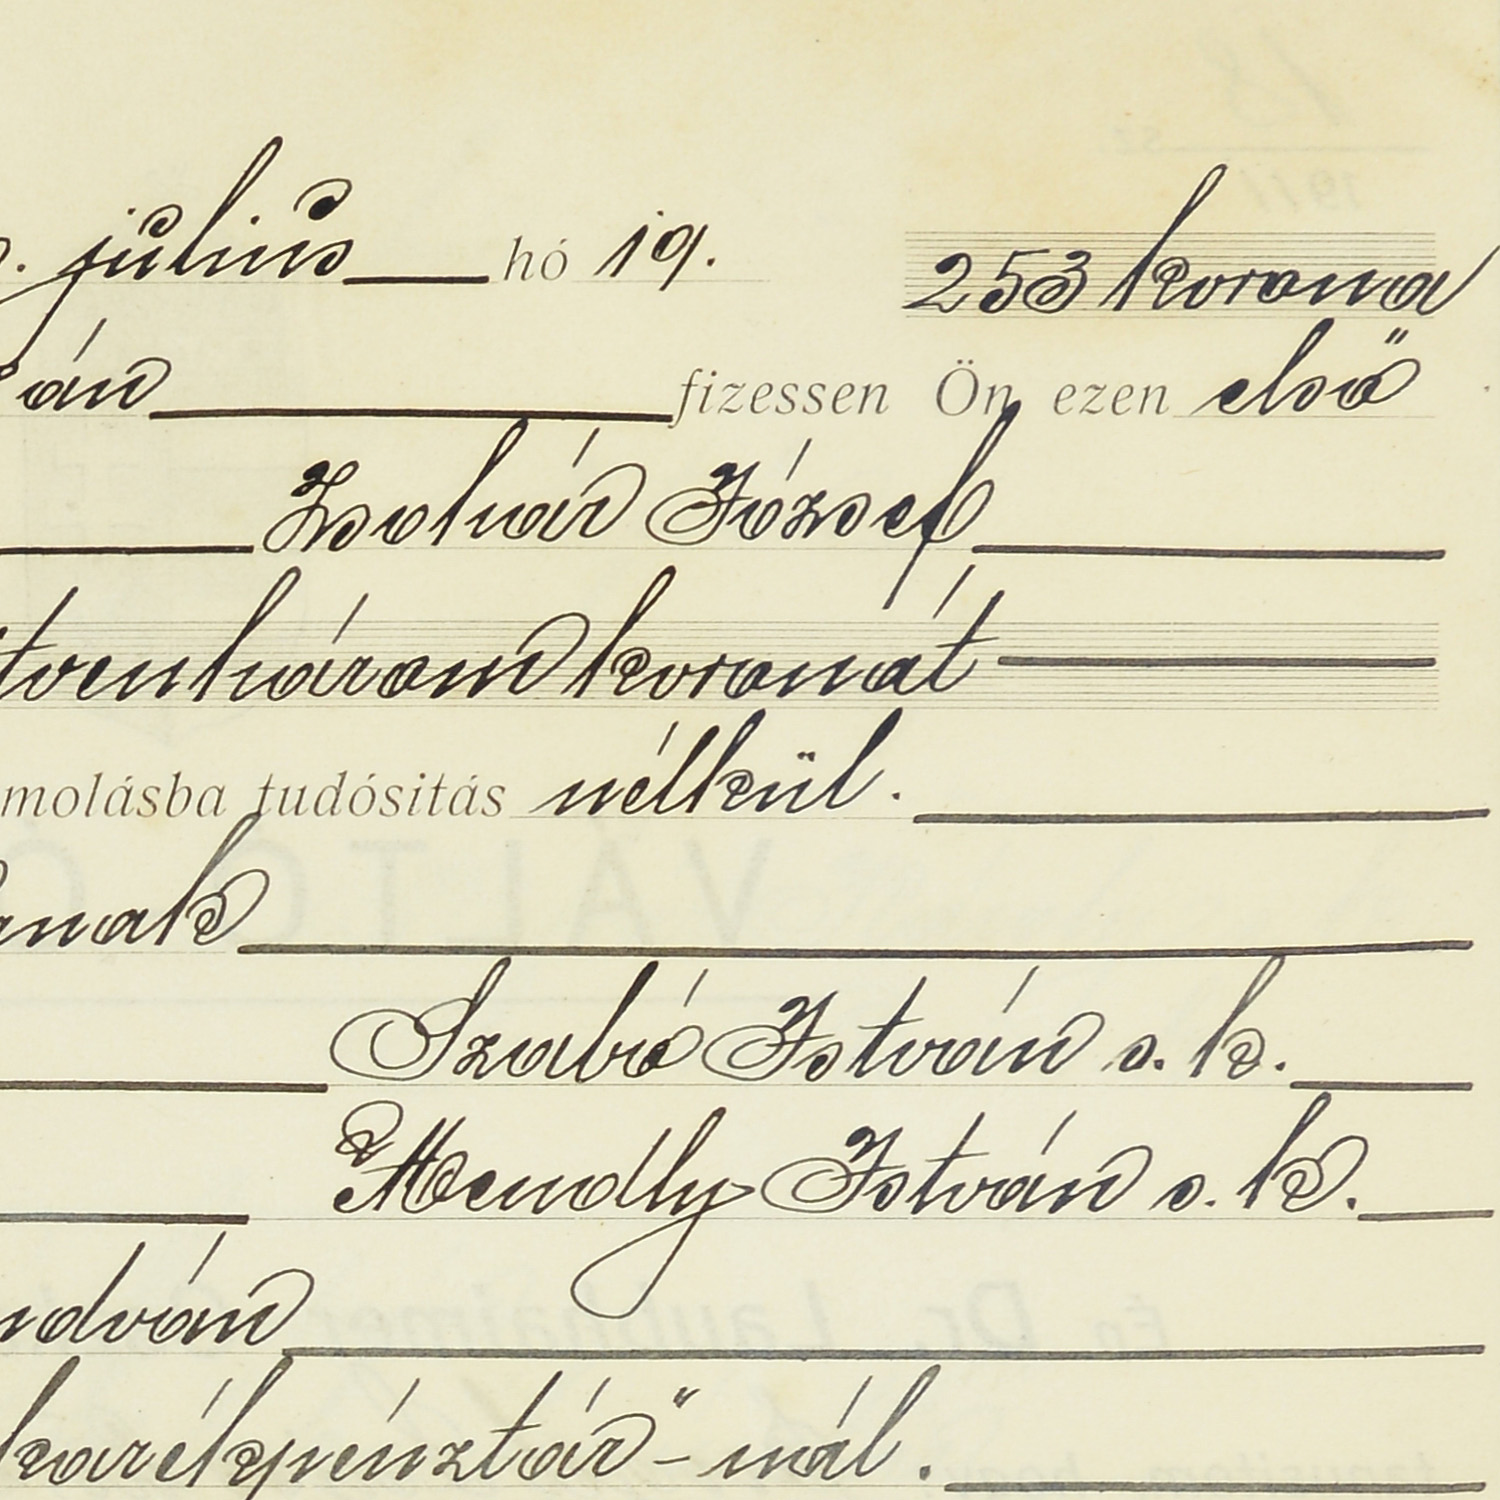 július hó 19. 253 korona
án fizessen Ön ezen első
Zsolnár József
tvenhárom koronát
molásba tudósitás nélkül.
nak
Szabó István s. k.
Mendly István s. k.
ndván
karékpénztár" - nál.